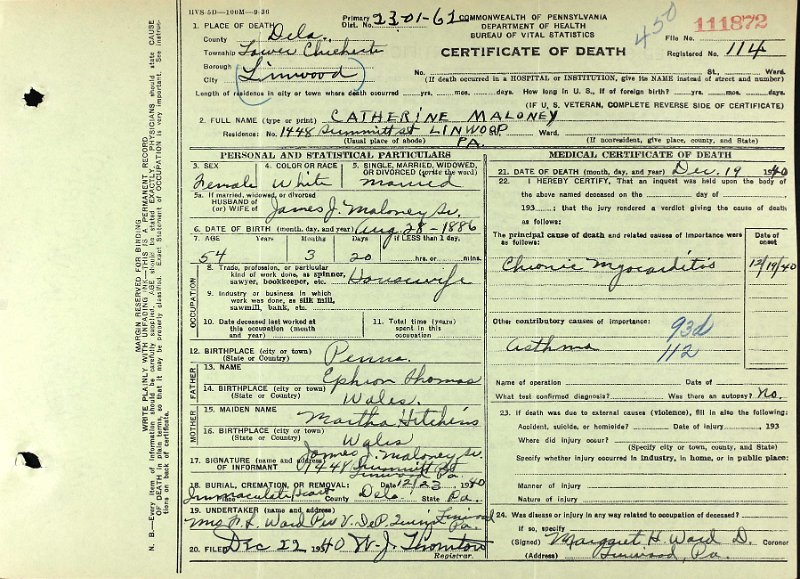 HVS-5D—100M—9-36
Primary Dist. No. 23-01-62
COMMONWEALTH OF PENNSYLVANIA
DEPARTMENT OF HEALTH
BUREAU OF VITAL STATISTICS
450
111872
CERTIFICATE OF DEATH
File No.
Registered No. 114
1. PLACE OF DEATH
County Dela.
Township Lower Chichester
Borough
City Linwood
No. St., Ward.
(If death occurred in a HOSPITAL or INSTITUTION, give its NAME instead of street and number)
Length of residence in city or town where death occurred yrs. mos. days. How long in U. S., if of foreign birth? yrs. mos. days.
(IF U. S. VETERAN, COMPLETE REVERSE SIDE OF CERTIFICATE)
2. FULL NAME (type or print) CATHERINE MALONEY
Residence: No. 1448 Summitt St LINWOOD PA. Ward.
(Usual place of abode) (If nonresident, give place, county, and State)
PERSONAL AND STATISTICAL PARTICULARS
3. SEX Female
4. COLOR OR RACE White
5. SINGLE, MARRIED, WIDOWED, OR DIVORCED (write the word) Married
5a. If married, widowed, or divorced
HUSBAND of
(or) WIFE of James J. Maloney Sr.
6. DATE OF BIRTH (month, day, and year) Aug 28-1886
7. AGE Years 54 Months 3 Days 20 If LESS than 1 day, hrs. or mins.
OCCUPATION
8. Trade, profession, or particular kind of work done, as spinner, sawyer, bookkeeper, etc. Housewife
9. Industry or business in which work was done, as silk mill, sawmill, bank, etc.
10. Date deceased last worked at this occupation (month and year)
11. Total time (years) spent in this occupation
12. BIRTHPLACE (city or town) (State or Country) Penna.
FATHER
13. NAME Ephron Thomas
14. BIRTHPLACE (city or town) (State or Country) Wales.
MOTHER
15. MAIDEN NAME Martha Hitchins
16. BIRTHPLACE (city or town) (State or Country) Wales
17. SIGNATURE (name and address) OF INFORMANT James J. Maloney Sr.
1448 Summitt St
Linwood, Pa.
18. BURIAL, CREMATION, OR REMOVAL: Date 12/23 1940
Immaculate Heart County Dela. State Pa.
19. UNDERTAKER (name and address)
Linwood Pa.
20. FILED Dec 22 1940 W. J. Thornton Registrar.
MEDICAL CERTIFICATE OF DEATH
21. DATE OF DEATH (month, day, and year) Dec. 19 1940
22. I HEREBY CERTIFY, That an inquest was held upon the body of
the above named deceased on the day of
193 ; that the jury rendered a verdict giving the cause of death
as follows:
The principal cause of death and related causes of importance were as follows:
Date of onset
Chronic Myocarditis 12/19/40
Other contributory causes of importance: 93d
Asthma 112
Name of operation Date of
What test confirmed diagnosis? Was there an autopsy? No.
23. If death was due to external causes (violence), fill in also the following:
Accident, suicide, or homicide? Date of injury 193
Where did injury occur?
(Specify city or town, county, and State)
Specify whether injury occurred in industry, in home, or in public place:
Manner of injury
Nature of injury
24. Was disease or injury in any way related to occupation of deceased?
If so, specify
(Signed) Margaret H. Ward D. Coroner
(Address) Linwood, Pa.
MARGIN RESERVED FOR BINDING
WRITE PLAINLY WITH UNFADING INK—THIS IS A PERMANENT RECORD
N. B.—Every item of information should be carefully supplied. AGE should be stated EXACTLY. PHYSICIANS should state CAUSE OF DEATH in plain terms, so that it may be properly classified. Exact Statement of OCCUPATION is very important. See instructions on back of certificate.